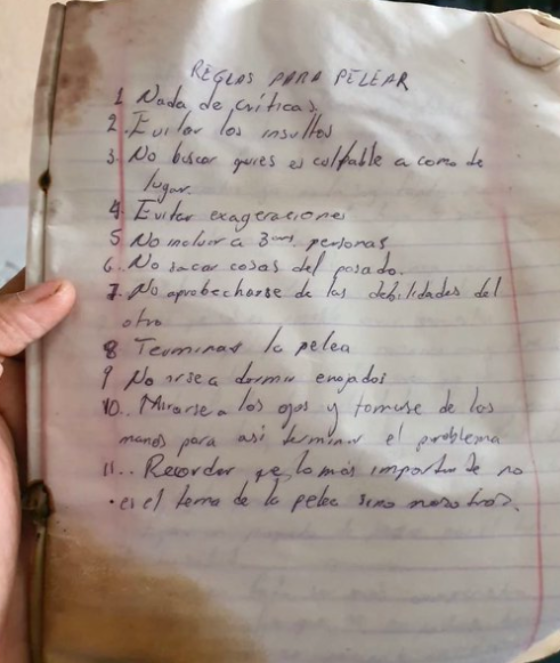 REGLAS PARA PELEAR
1 Nada de críticas.
2. Evitar los insultos
3. No buscar quies es culpable a como de
lugar.
4. Evitar exageraciones
5 No incluir a 3ras personas
6.. No sacar cosas del pasado.
7. No aprobecharse de las debilidades del
otro
8 Terminar la pelea
9 No irse a dormir enojados
10.. Mirarse a los ojos y tomarse de las
manos para así terminar el problema
11.. Recordar qe lo más importante no
es el tema de la pelea sino nosotros.